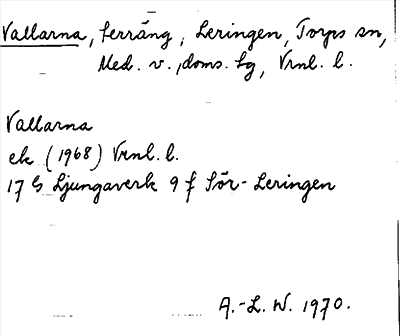 Vallarna, terräng, Leringen, Torps sn,
Med. v. doms. lg, Vrnl. l.
Vallarna
ek (1968) Vrnl. l.
17 G Ljungaverk 9 f Sör-Leringen
A.-L. W. 1970.